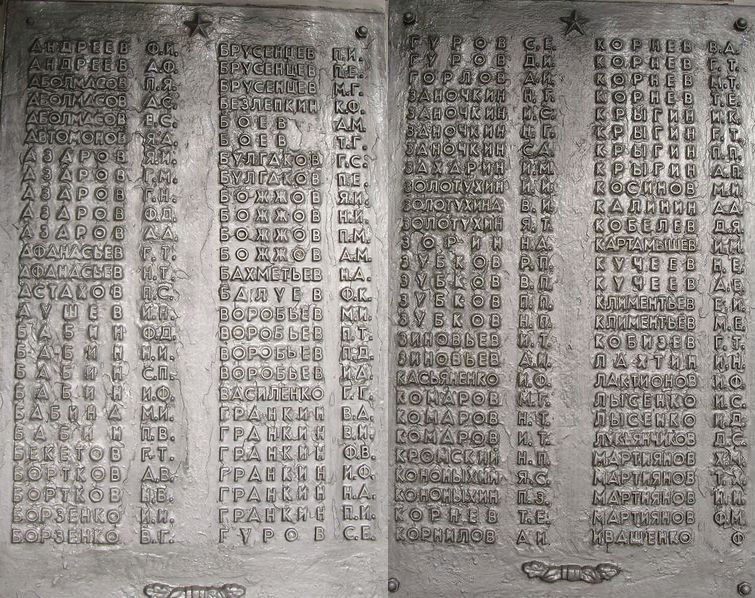 АНДРЕЕВ Ф.И.
АНДРЕЕВ А.Ф.
АБОЛМАСОВ П.Я.
АБОЛМАСОВ А.С.
АБОЛМАСОВ В.С.
АВТОМОНОВ Я.Д.
АЗАРОВ Я.И.
АЗАРОВ Г.М.
АЗАРОВ Г.Н.
АЗАРОВ Ф.Д.
АЗАРОВ А.Д.
АФАНАСЬЕВ Г.Т.
АФАНАСЬЕВ Н.Т.
АСТАХОВ П.С.
АУШЕВ И.Н.
БАБИН Ф.Д.
БАБИН Н.И.
БАБИН С.П.
БАБИН И.Ф.
БАБИНА М.И.
БАБИН П.В.
БЕКЕТОВ Г.Т.
БОРТКОВ А.В.
БОРТКОВ И.В.
БОРЗЕНКО И.И.
БОРЗЕНКО В.Г.
БРУСЕНЦЕВ П.И.
БРУСЕНЦЕВ П.Е.
БРУСЕНЦЕВ М.Г.
БЕЗЛЕПКИН К.Ф.
БОЕВ А.М.
БОЕВ Т.Г.
БУЛГАКОВ Г.С.
БУЛГАКОВ П.Е.
БОЖКОВ Я.И.
БОЖКОВ Н.И.
БОЖКОВ П.М.
БОЖКОВ А.М.
БАХМЕТЬЕВ Н.А.
БАЛУЕВ Ф.К.
ВОРОБЬЕВ М.И.
ВОРОБЬЕВ П.Т.
ВОРОБЬЕВ П.Д.
ВОРОБЬЕВ И.Д.
ВАСИЛЕНКО Г.Г.
ГРАНКИН В.А.
ГРАНКИН В.И.
ГРАНКИН Ф.В.
ГРАНКИН И.Ф.
ГРАНКИН Н.А.
ГРАНКИН П.И.
ГУРОВ С.Е.
ГУРОВ С.Е.
ГУРОВ Д.И.
ГОРЛОВ А.И.
ЗАНОЧКИН Н.Г.
ЗАНОЧКИН И.С.
ЗАНОЧКИН Н.Г.
ЗАНОЧКИН С.Д.
ЗАХАРИН И.М.
ЗОЛОТУХИН И.И.
ЗОЛОТУХИНА В.И.
ЗОЛОТУХИН Я.Т.
ЗОРИН Н.А.
ЗУБКОВ Р.П.
ЗУБКОВ В.П.
ЗУБКОВ П.П.
ЗУБКОВ Н.П.
ЗИНОВЬЕВ И.Т.
ЗИНОВЬЕВ А.И.
КАСЬЯНЕНКО И.Ф.
КОМАРОВ М.Г.
КОМАРОВ Н.Т.
КОМАРОВ И.Т.
КРОМСКИЙ Н.П.
КОНОНЫХИН Я.С.
КОНОНЫХИН П.З.
КОРНЕВ Т.Е.
КОРНИЛОВ А.И.
КОРНЕВ В.А.
КОРНЕВ Г.Т.
КОРНЕВ М.Т.
КОРНЕВ Т.Е.
КРЫГИН И.К.
КРЫГИН Г.Т.
КРЫГИН П.П.
КРЫГИН А.П.
КОСИНОВ М.И.
КАЛИНИН А.А.
КОБЕЛЕВ Д.Я.
КАРТАМЫШЕВ И.И.
КУЧЕЕВ Н.Е.
КУЧЕЕВ А.Е.
КЛИМЕНТЬЕВ Е.И.
КЛИМЕНТЬЕВ М.Е.
КОБИЗЕВ Г.Т.
ЛАХТИН И.Н.
ЛАКТИОНОВ И.Ф.
ЛЫСЕНКО И.С.
ЛЫСЕНКО И.Д.
ЛУКЬЯНЧИКОВ Д.С.
МАРТИЯНОВ Х.М.
МАРТИЯНОВ Т.Х.
МАРТИЯНОВ И.И.
МАРТИЯНОВ Ф.М.
ИВАЩЕНКО Ф